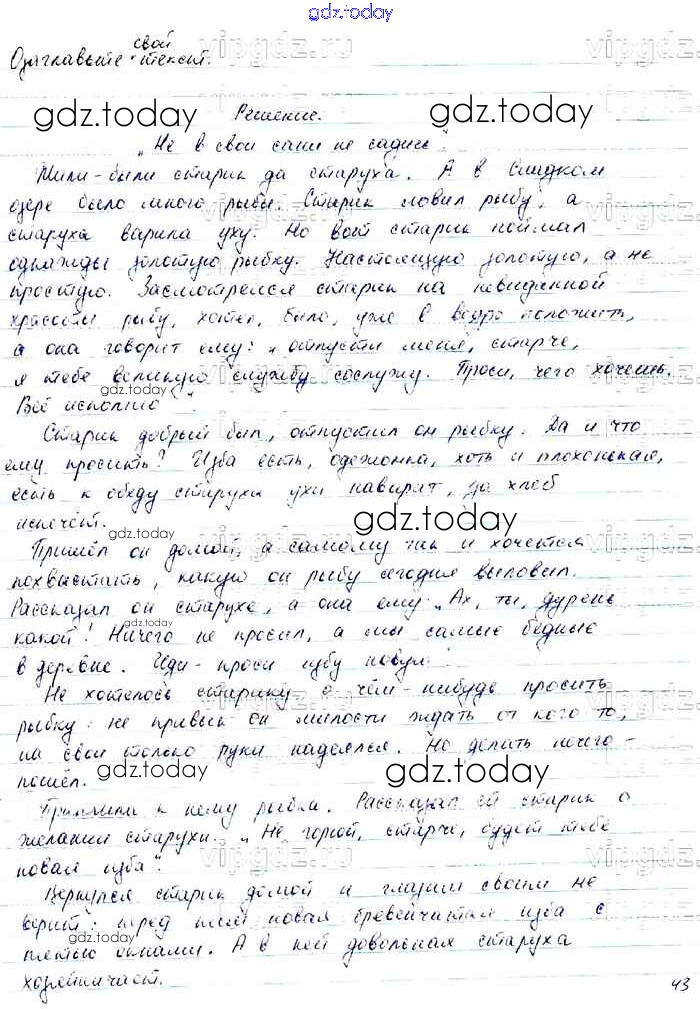 gdz.today
свой
Озаглавьте текст.
Решение.
„Не в свои сани не садись“
Жили-были старик да старуха. А в
озере было много рыбы. Старик ловил рыбу, а
старуха варила уху. Но вот старик поймал
однажды золотую рыбку. Настоящую золотую, а не
простую. Засмотрелся старик на невиданной
красоты рыбу, хотел, было, уже в ведро положить,
а она говорит ему: „отпусти меня, старче,
я тебе великую службу сослужу. Проси, чего хочешь.
Всё исполню“.
Старик добрый был, отпустил он рыбку. Да и что
ему просить? Изба есть, одежонка, хоть и плохонькая,
есть к обеду старуха ухи наварит, да хлеб
испечёт.
Пришёл он домой, а самому так и хочется
похвастать, какую он рыбу сегодня выловил.
Рассказал он старухе, а она ему: „Ах, ты, дурень
какой! Ничего не просил, а мы самые бедные
в деревне. Иди-проси избу новую.
Не хотелось старику о чём-нибудь просить
рыбку: не привык он милости ждать от кого то,
на свои только руки надеялся. Но делать нечего -
пошёл.
Приплыла к нему рыбка. Рассказал ей старик о
желании старухи. „Не горюй, старче, будет тебе
новая изба“.
Вернулся старик домой и глазам своим не
верит: перед ним новая бревенчатая изба с
пятью окнами. А в ней довольная старуха
хозяйничает.
43